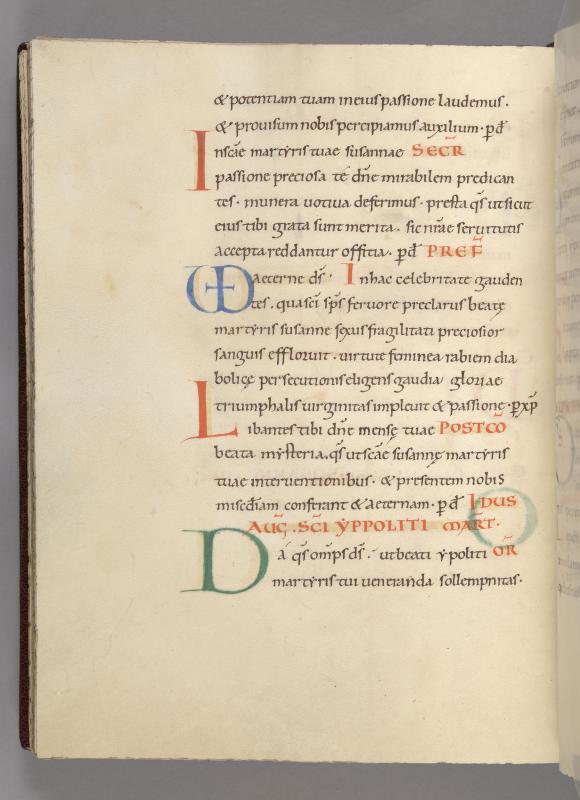 & potentiam tuam in eius passione laudemus.
& prouisum nobis percipiamus auxilium · p̄ d̄
In scāe martẏris tuae susannae SECR̄
passione preciosa te dn̄e mirabilem predican
tes · munera uotiua deferimus · presta qs̄ ut sicut
eius tibi grata sunt merita · sic nr̄ae seruitutis
accepta reddantur offitia · p̄ d̄ PREF̄
VD aeterne ds̄ · In hac celebritate gauden
tes · quasci sp̄s feruore preclarus beatę
martẏris susanne sexus fragilitati preciosior
sanguis effloruit · uirtute feminea rabiem dia
bolicę persecutionis eligens gaudia gloriae
triumphalis uirginitas impleuit & passione · p̄ xp̄
Libantes tibi dn̄e mensę tuae POSTCŌ
beata mẏsteria, qs̄ ut scāe susannę martẏris
tuae interuentionibus · & presentem nobis
misedīam conferant & aeternam · p̄ d̄ IDUS
AUḠ · SC̄I ẎPPOLITI MART̄ ·
Da qs̄ omp̄s ds̄ · ut beati ẏpoliti OR̄
martẏris tui ueneranda sollempnitas ·